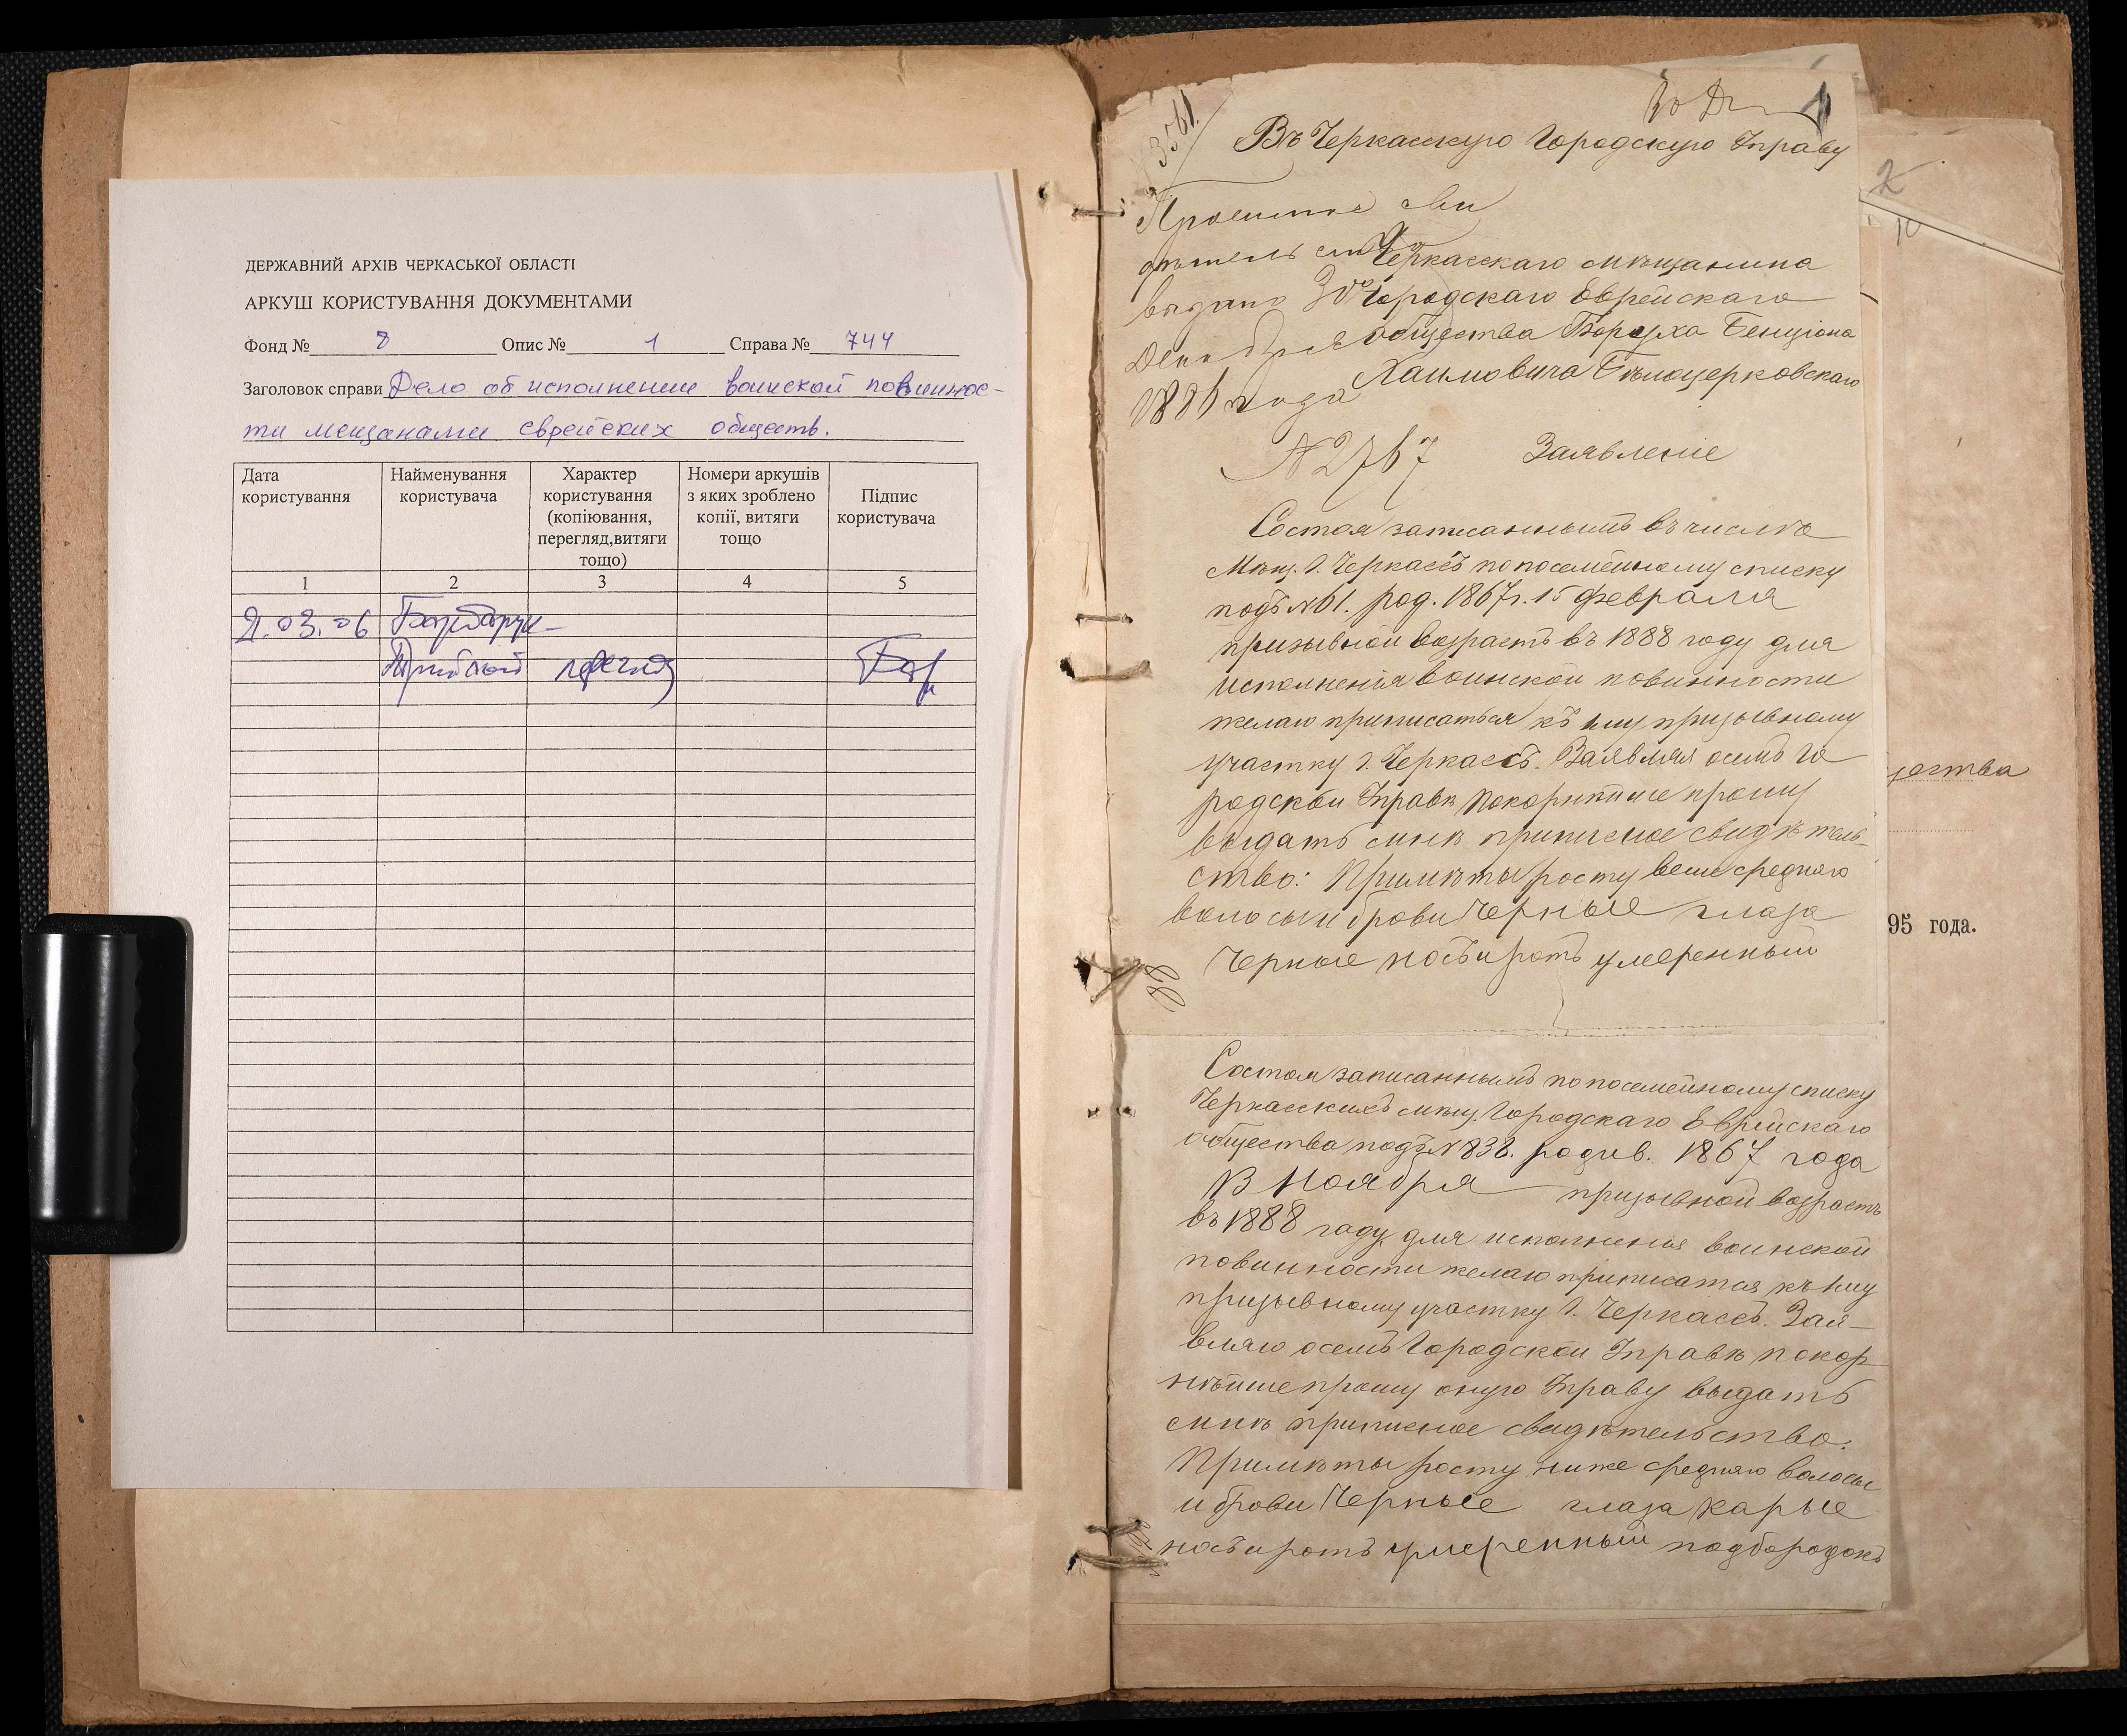 ДЕРЖАВНИЙ АРХІВ ЧЕРКАСЬКОЇ ОБЛАСТІ
АРКУШ КОРИСТУВАННЯ ДОКУМЕНТАМИ
Фонд № 8 Опис № 1 Справа № 744
Заголовок справи Дело об исполнении воинской повиннос-
ти мещанами еврейских обществ.
Дата користування
Найменування користувача
Характер користування (копіювання, перегляд,витяги тощо)
Номери аркушів з яких зроблено копії, витяги тощо
Підпис користувача
1 2 3 4 5
03.06
перегляд
1
Въ Черкасскую Городскую Управу
Приписное сви
дѣтельство
выдано 30го
Декабря
1886 года
№ 2767
Черкасскаго мѣщанина
Городскаго Еврейскаго
общества Боруха Бенціона
Хаимовича Бѣлоцерковскаго
Заявленіе
Состоя записаннымъ въ числѣ
Мѣщ. г. Черкассъ по посемейному списку
подъ № 61. род. 1867 г. 15 февраля
призывной возрастъ въ 1888 году для
исполненія воинской повинности
желаю приписаться къ 1му призывному
участку г. Черкассъ. Заявляя осемъ Го
родской Управѣ покорнѣйше прошу
выдать мнѣ приписное свидѣтель-
ство: Примѣты росту выше средняго
волосы и брови черные глаза
черные носъ и ротъ умеренный
Состоя записаннымъ по посемейному списку
Черкасскихъ мѣщ. Городскаго Еврейскаго
общества подъ № 838. родив. 1867 года
13 Ноября призывной возрастъ
въ 1888 году для исполненія воинской
повинности желаю приписатся къ 1му
призывному участку г. Черкассъ. Зая-
вляю осемъ Городской Управѣ покор
нѣйше прошу оную Управу выдать
мнѣ приписное свидѣтельство.
Примѣты росту ниже средняго волосы
и брови черные глаза карые
носъ и ротъ умеренный подбородокъ
2
95 года.